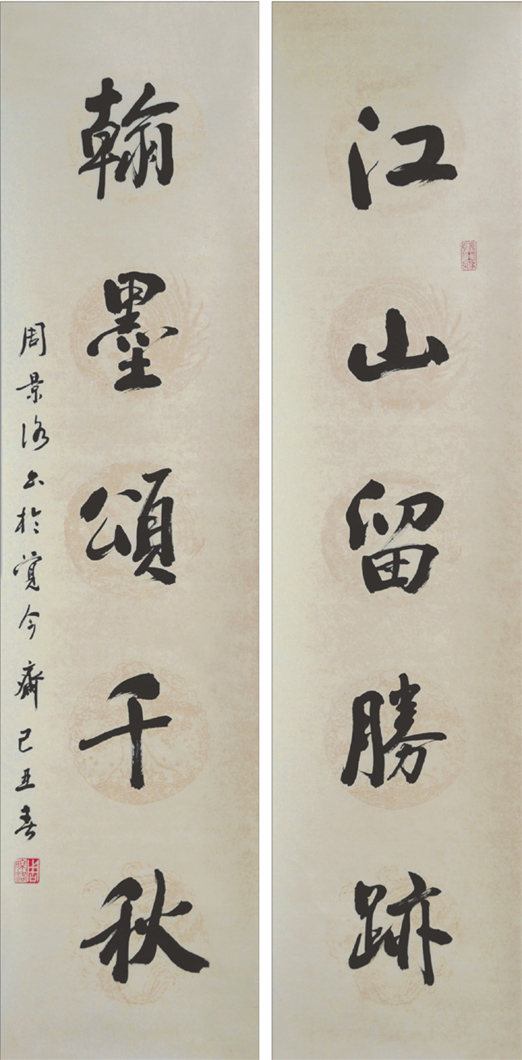 江山留勝跡
翰墨頌千秋
周景洛書於覽今齋己丑春